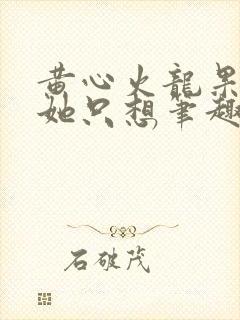 黄心火龍果
她只想筆趣
石破茂